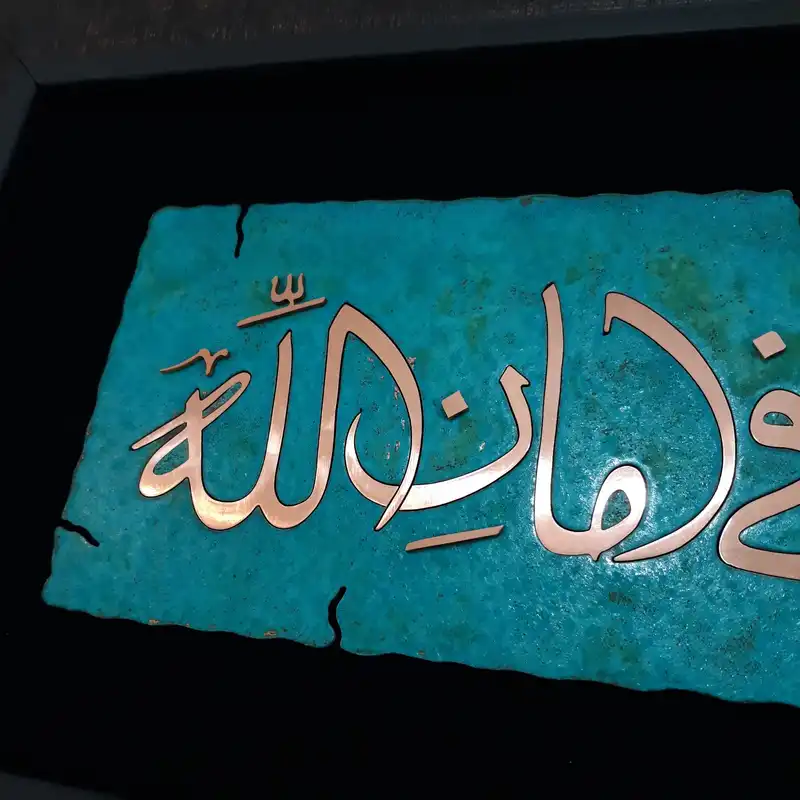 في امانِ اللّٰه